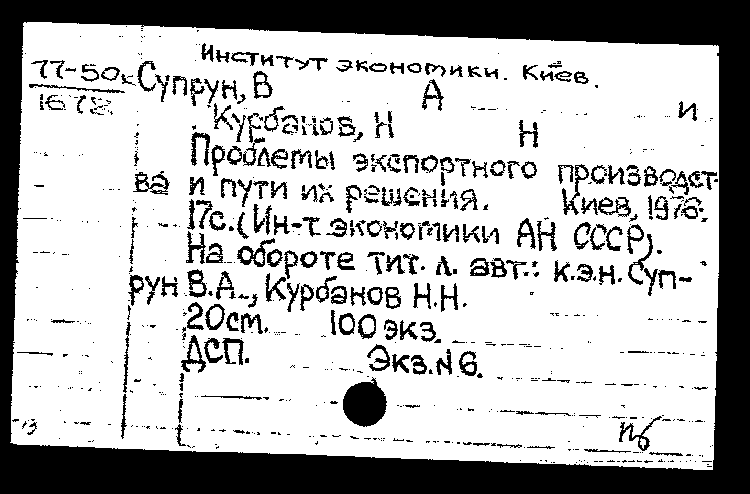 Институт экономики. Киев.
77-50к Супрун, В А и
1678 Курбанов, Н Н
Проблемы экспортного производст-
ва и пути их решения. Киев, 1976.
17с. (Ин-т экономики АН СССР).
На обороте тит. л. авт.: к.э.н. Суп-
рун В.А., Курбанов Н.Н.
20см. 100 экз.
ДСП. Экз.N 6.
13